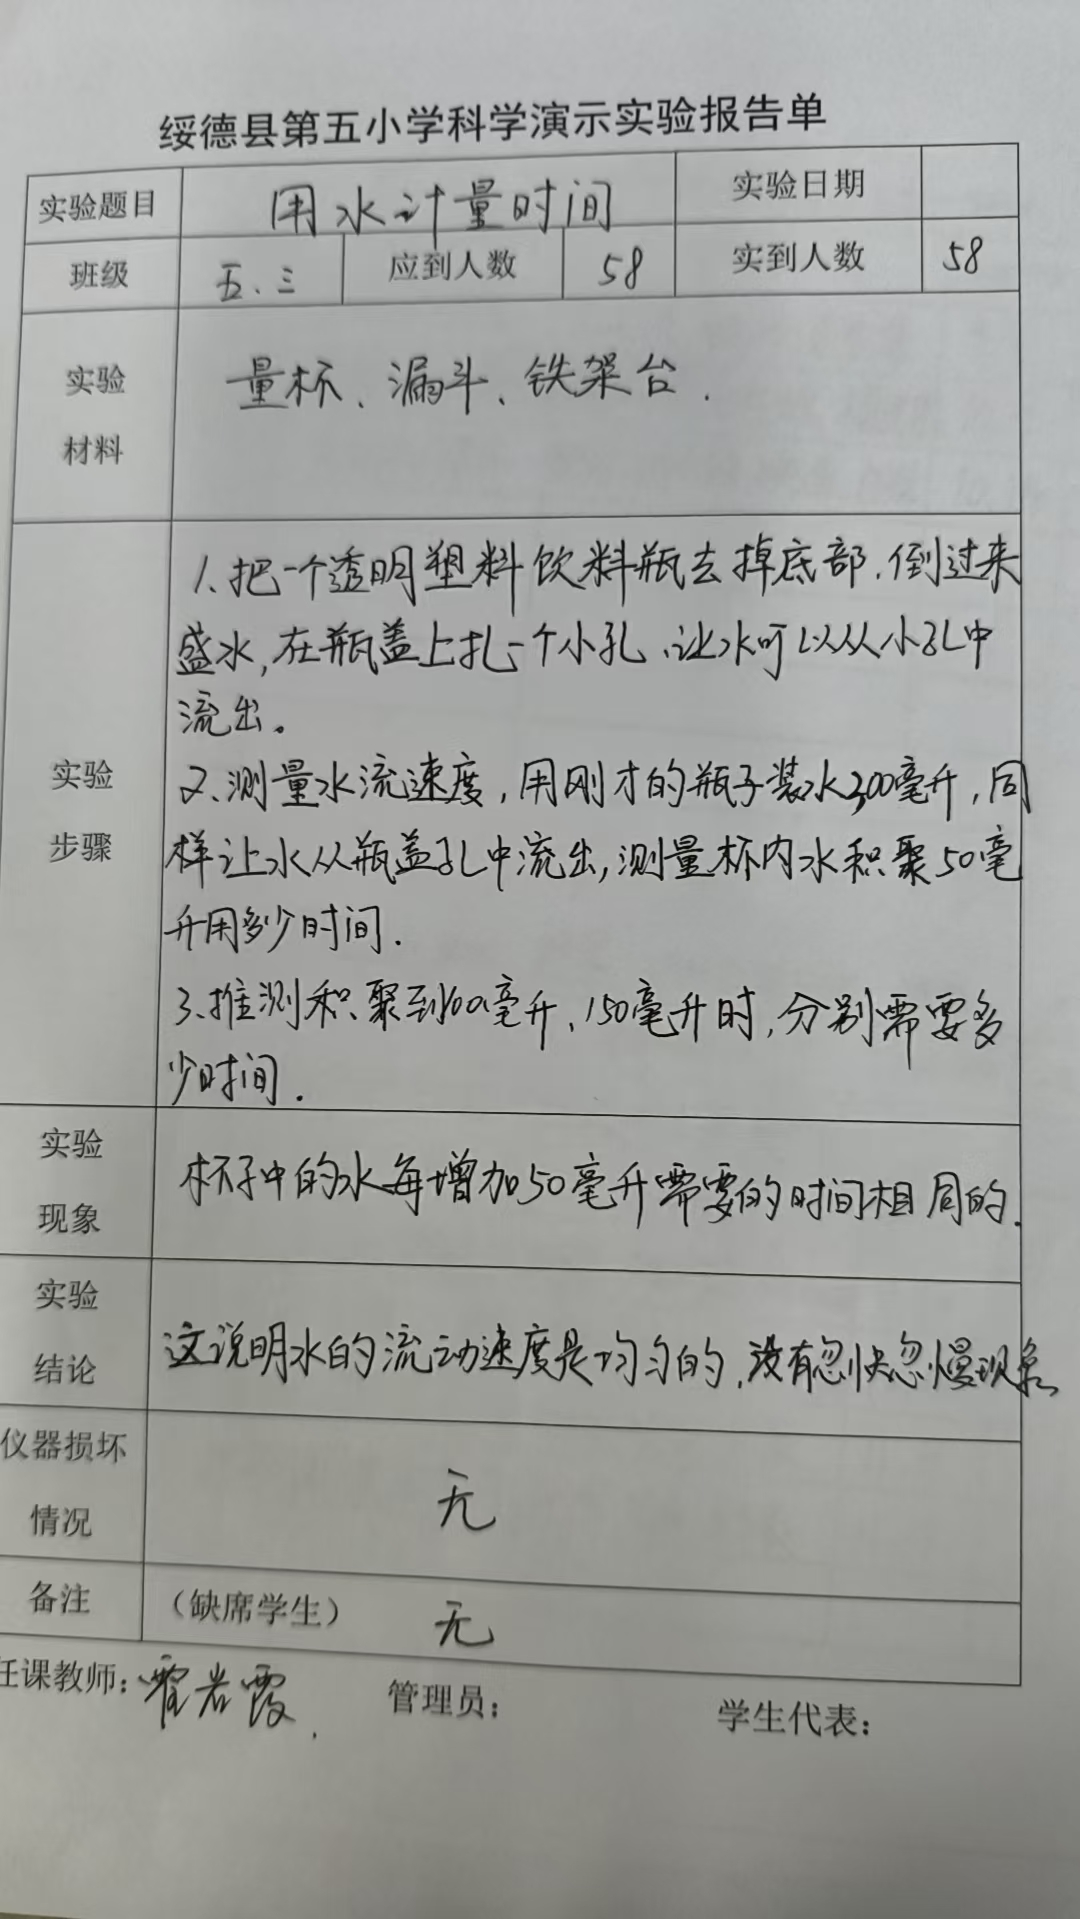 绥德县第五小学科学演示实验报告单
实验题目 用水计量时间 实验日期
班级 五.三 应到人数 58 实到人数 58
实验
材料
量杯、漏斗、铁架台.
实验
步骤
1.把一个透明塑料饮料瓶去掉底部.倒过来
盛水,在瓶盖上扎一个小孔.让水可以从小孔中
流出。
2.测量水流速度,用刚才的瓶子装水300毫升,同
样让水从瓶盖孔中流出,测量杯内水积聚50毫
升用多少时间.
3.推测积聚到100毫升、150毫升时,分别需要多
少时间.
实验
现象
杯子中的水每增加50毫升需要的时间相同的.
实验
结论
这说明水的流动速度是均匀的,没有忽快忽慢现象
仪器损坏
情况
无
备注 (缺席学生) 无
任课教师: 霍岩霞. 管理员: 学生代表: